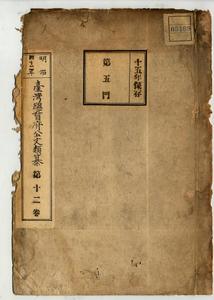 十五年保存
第五門
明治
四十二年
臺灣總督府公文類纂
第十二卷